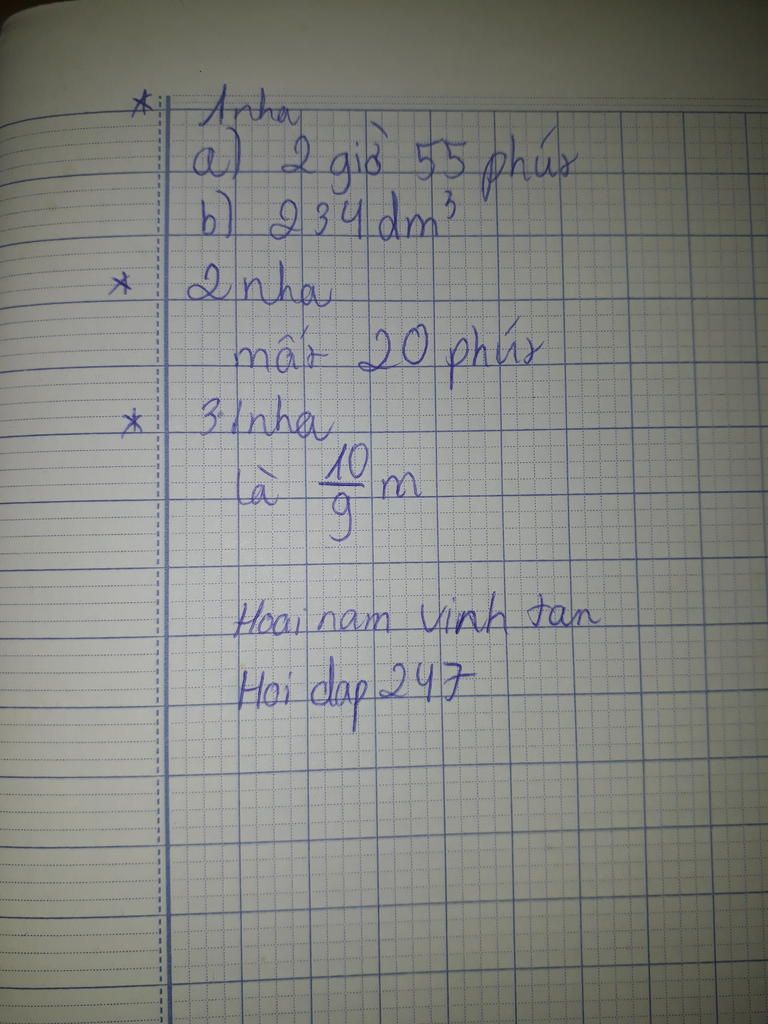 * 1 nha
a) 2 giờ 55 phút
b) 234 dm³
* 2 nha
mất 20 phút
* 3 nha
là 10/9 m
Hoai nam vinh tan
Hoi dap 247